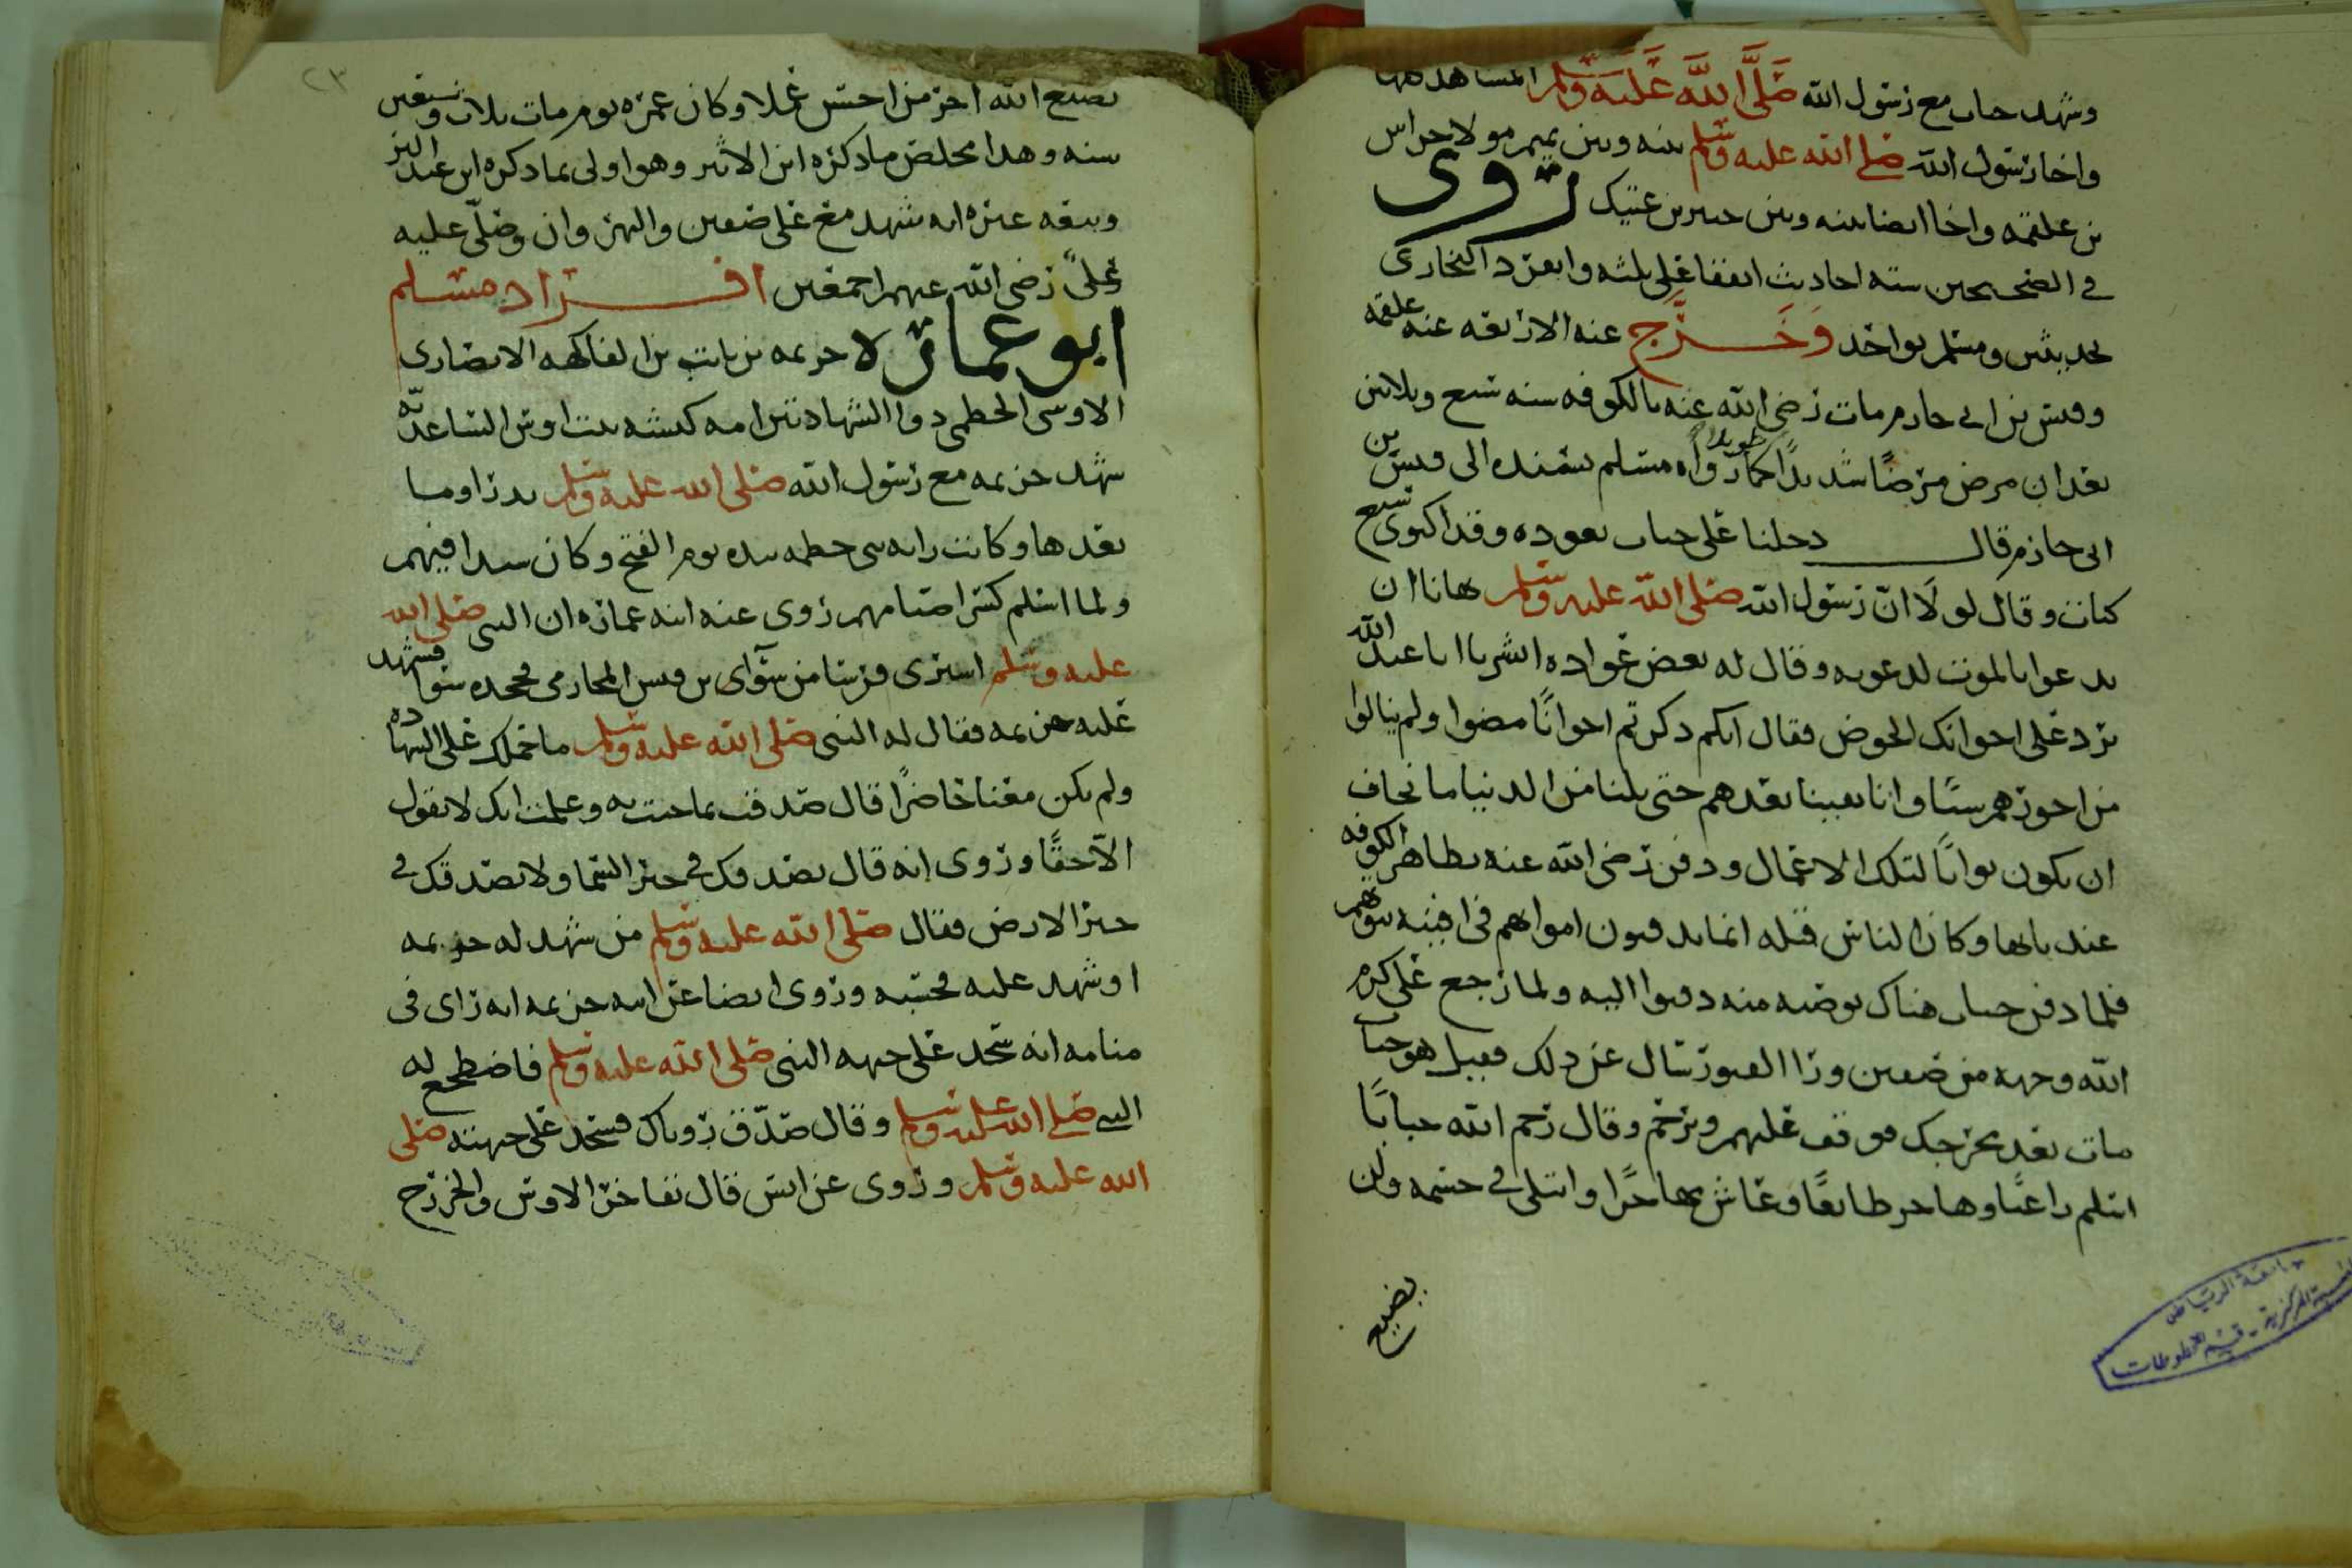 وشهد خباب مع رسول الله صَلَّى اللَّه عَلَيْهِ وَسلم المشاهد كلها
واخا رسول الله صلى الله عليه وسلم بينه وبين تميم مولا خراش
بن علقمه واخا ايضا بينه وبين جبير بن عتيك روى
في الصحيحين سته احاديث اتفقا على ثلثه وانفرد البخارى
بحديثين ومسلم بواحد وَخَرَّج عنه الاربعه عنه علقمه
وقيس بن ابي حازم مات رضي الله عنه بالكوفه سنه سبع وثلاثين
بعد ان مرض مرضًا شديدًا طويلا كما رواه مسلم بسنده الى قيس بن
ابى حازم قال دخلنا على خباب نعوده وقد اكتوى سبع
كيات وقال لولا انّ رسول الله صلى الله عليه وسلم نهانا ان
ندعوا بالموت لدعوت به وقال له بعض عواده ابشر يا ابا عبد الله
ترد على اخوانك الحوض فقال انكم ذكرتم اخوانًا مضوا ولم ينالوا
من اجورهم شيئًا وانا بقينا بعدهم حتى نلنا من الدنيا ما نخاف
ان يكون ثوابًا لتلك الاعمال ودفن رضي الله عنه بظاهر الكوفه
عند بابها وكان الناس قبله انما يدفنون امواتهم في افنيه بيوتهم
فلما دفن خباب هناك بوصيه منه دفنوا اليه ولما رجع على كرم
الله وجهه من صفين ورأ القبور سال عن ذلك فقيل هو خباب
مات بعد مخرجك فوقف عليهم وترحم وقال رحم الله خبابًا
اسلم راغبًا وهاجر طائعًا وعاش مجاهدًا وابتلى في جسمه ولن
يضيع
٢٣
يضيع الله اجر من احسن عملا وكان عمره يوم مات ثلاث وسبعين
سنه وهذا مخلص ما ذكره ابن الاثير وهو اولى مما ذكره ابن عبد البر
وتبعه غيره انه شهد مع على صفين والنهر وان وصلّى عليه
علىٌّ رضي الله عنهم اجمعين افراد مسلم
ابو عماره خزيمه بن ثابت بن الفاكهه الانصارى
الاوسى الخطمي ذوا الشهادتين امه كبشه بنت اوس الساعديّه
شهد خزيمه مع رسول الله صلى الله عليه وسلم بدرا وما
بعدها وكانت رايه بنى خطمه بيده يوم الفتح وكان سيدا فيهم
ولما اسلم كسر اصنامهم روى عنه ابنه عماره ان النبي صلى الله
عليه وسلم اشترى فرسا من سوآى بن قيس المحاربي فجحده سوا فشهد
عليه خزيمه فقال له النبي صلى الله عليه وسلم ما حملك على الشهاده
ولم تكن معنا حاضرًا قال صدقت بما جئت به وعلمت انك لا تقول
الاّ حقًّا وروى انه قال نصدقك في خبر السما ولا نصدقك في
خبر الارض فقال صلى الله عليه وسلم من شهد له خزيمه
او شهد عليه فحسبه وروى ايضا عن ابيه خزيمه انه راى في
منامه انه سجد على جبهه النبي صلى الله عليه وسلم فاضطجع له
النبي صلى الله عليه وسلم وقال صدّق روياك فسجد على جبهته صلى
الله عليه وسلم وروى عن انس قال تفاخر الاوس والخزرج
جامعة الرياض
المكتبة المركزية - قسم المخطوطات